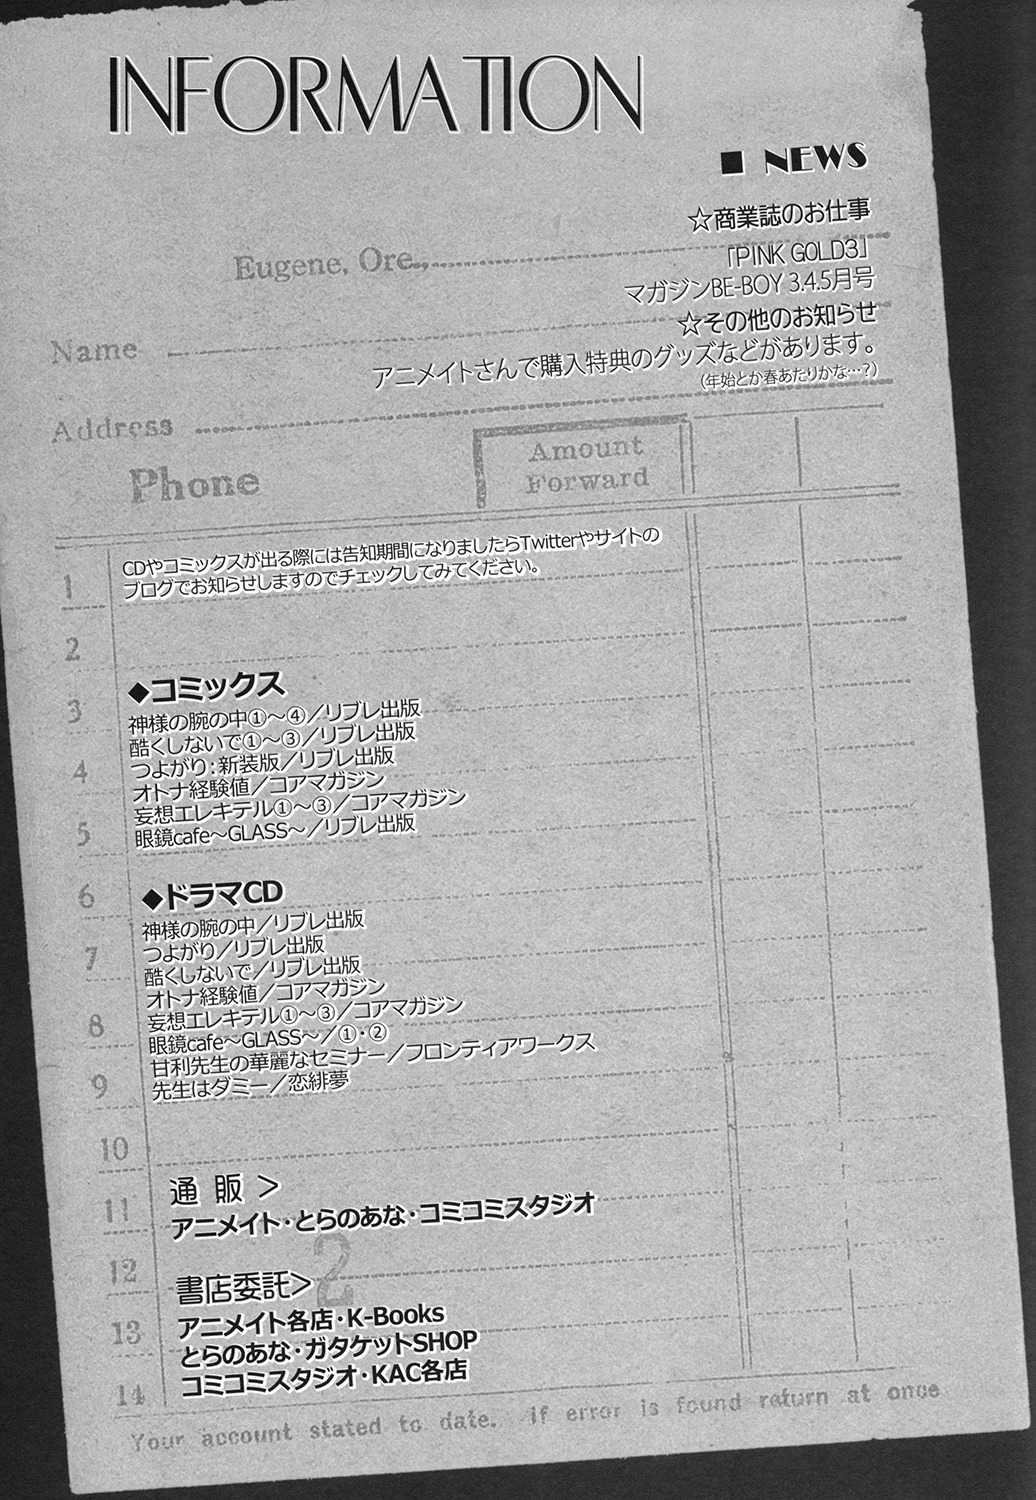 INFORMATION
■ NEWS
☆商業誌のお仕事
「PINK GOLD3」
マガジンBE-BOY 3.4.5月号
☆その他のお知らせ
アニメイトさんで購入特典のグッズなどがあります。
(年始とか春あたりかな…?)
Eugene, Ore.,
Name
Address
Phone
Amount
Forward
CDやコミックスが出る際には告知期間になりましたらTwitterやサイトの
ブログでお知らせしますのでチェックしてみてください。
1
2
◆コミックス
3
神様の腕の中①〜④／リブレ出版
酷くしないで①〜③／リブレ出版
つよがり：新装版／リブレ出版
4
オトナ経験値／コアマガジン
妄想エレキテル①〜③／コアマガジン
5
眼鏡cafe〜GLASS〜／リブレ出版
6
◆ドラマCD
神様の腕の中／リブレ出版
つよがり／リブレ出版
7
酷くしないで／リブレ出版
オトナ経験値／コアマガジン
妄想エレキテル①〜③／コアマガジン
8
眼鏡cafe〜GLASS〜／①・②
甘利先生の華麗なセミナー／フロンティアワークス
9
先生はダミー／恋緋夢
10
通 販 ＞
11
アニメイト・とらのあな・コミコミスタジオ
12
2
書店委託＞
13
アニメイト各店・K-Books
とらのあな・ガタケットSHOP
14
コミコミスタジオ・KAC各店
Your account stated to date. if error is found return at once